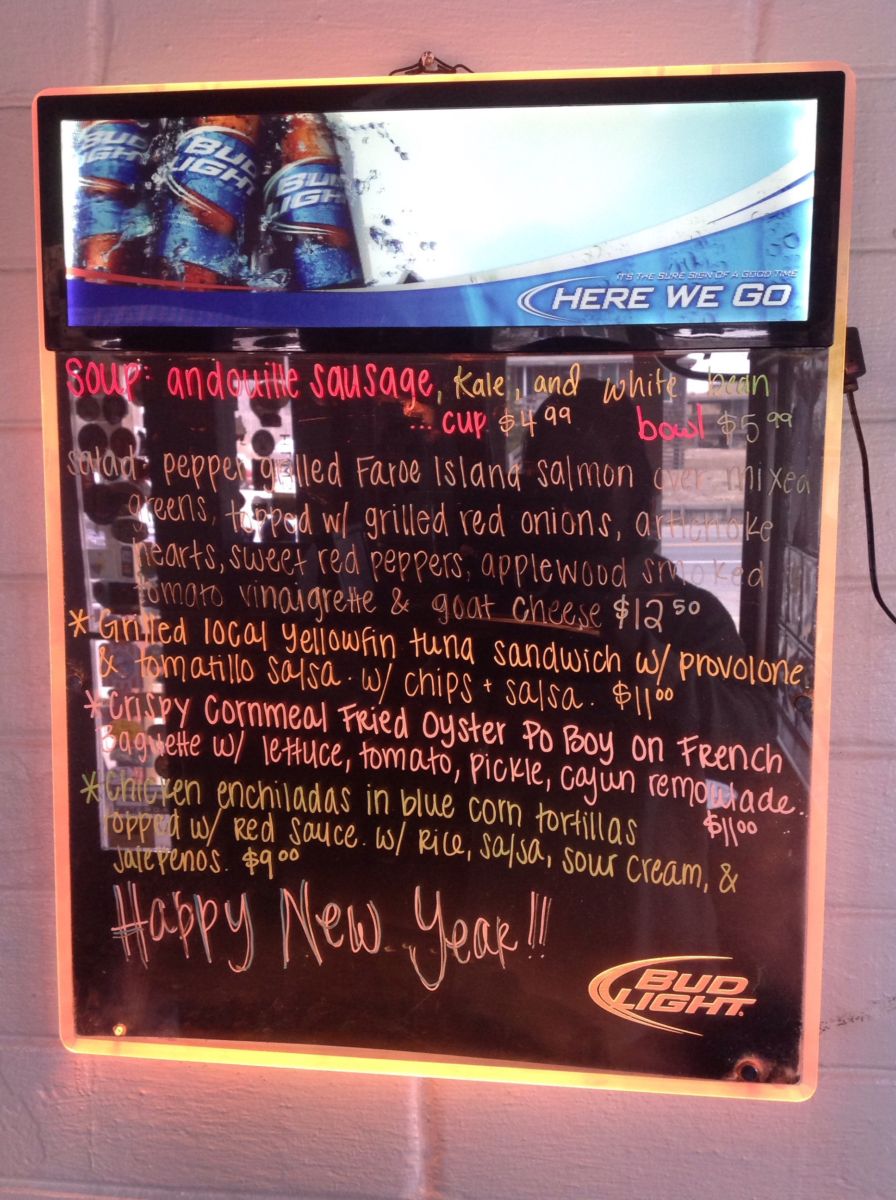 BUD LIGHT
BUD LIGHT
BUD LIGHT
IT'S THE SURE SIGN OF A GOOD TIME
HERE WE GO
Soup: andouille sausage, Kale, and white bean
... cup $4.99 bowl $5.99
salad: pepper grilled Faroe Island salmon over mixed
greens, topped w/ grilled red onions, artichoke
hearts, sweet red peppers, applewood smoked
tomato vinaigrette & goat cheese $12.50
* Grilled local Yellowfin tuna sandwich w/ provolone
& tomatillo salsa. w/ chips + salsa. $11.00
* Crispy Cornmeal Fried Oyster Po Boy on French
Baguette w/ lettuce, tomato, pickle, cajun remoulade.
$11.00
* Chicken enchiladas in blue corn tortillas
topped w/ Red Sauce. w/ Rice, salsa, sour cream, &
Jalepenos. $9.00
Happy New Year!!
BUD LIGHT